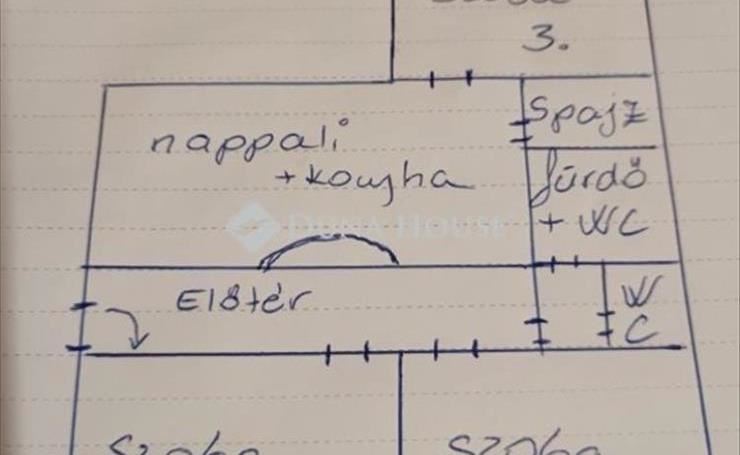 3.
Spajz
nappali
+ konyha
fürdő
+ WC
DUNA HOUSE
Előtér
W
C
szoba
szoba